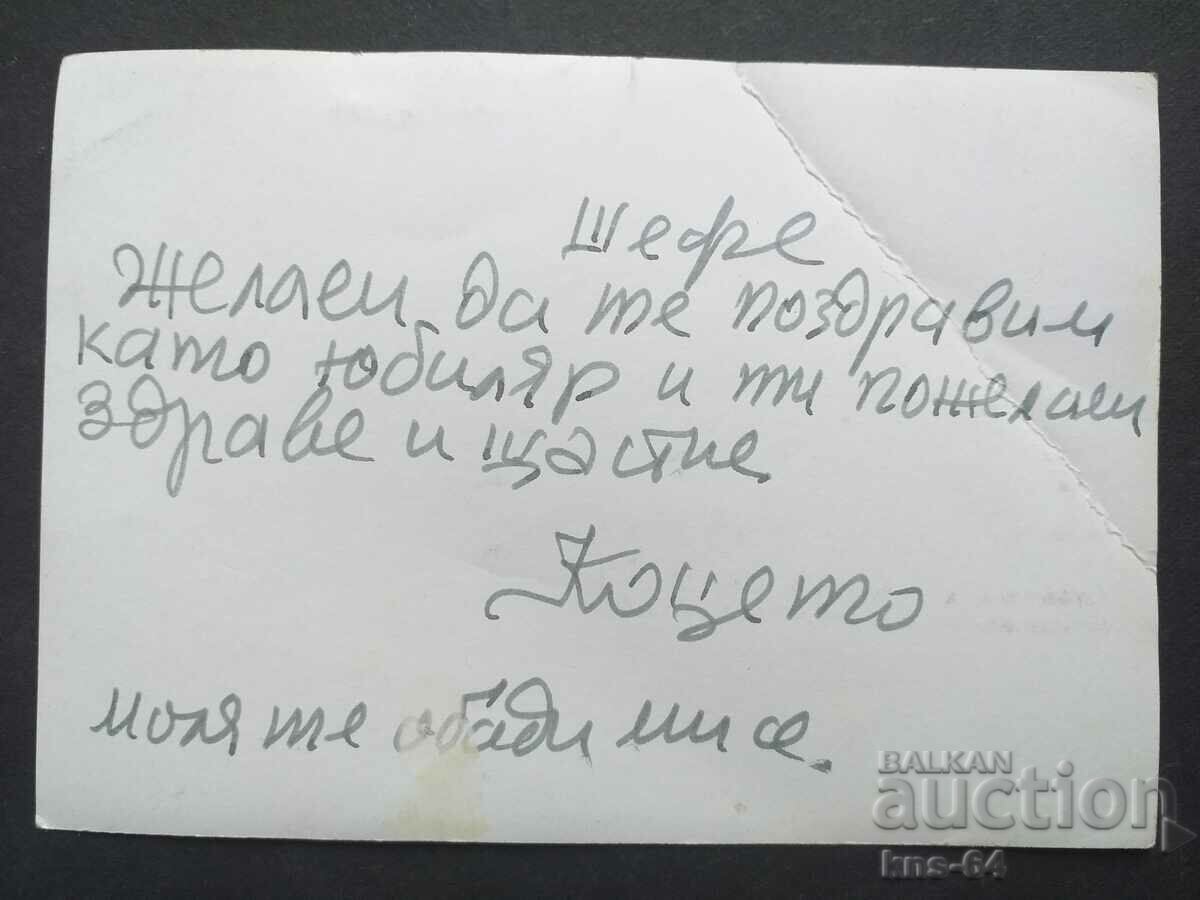 шефе
Желаем да те поздравим
като юбиляр и ти пожелаем
здраве и щастие
Коцето
моля те обади ми се.
BALKAN
auction
kns-64